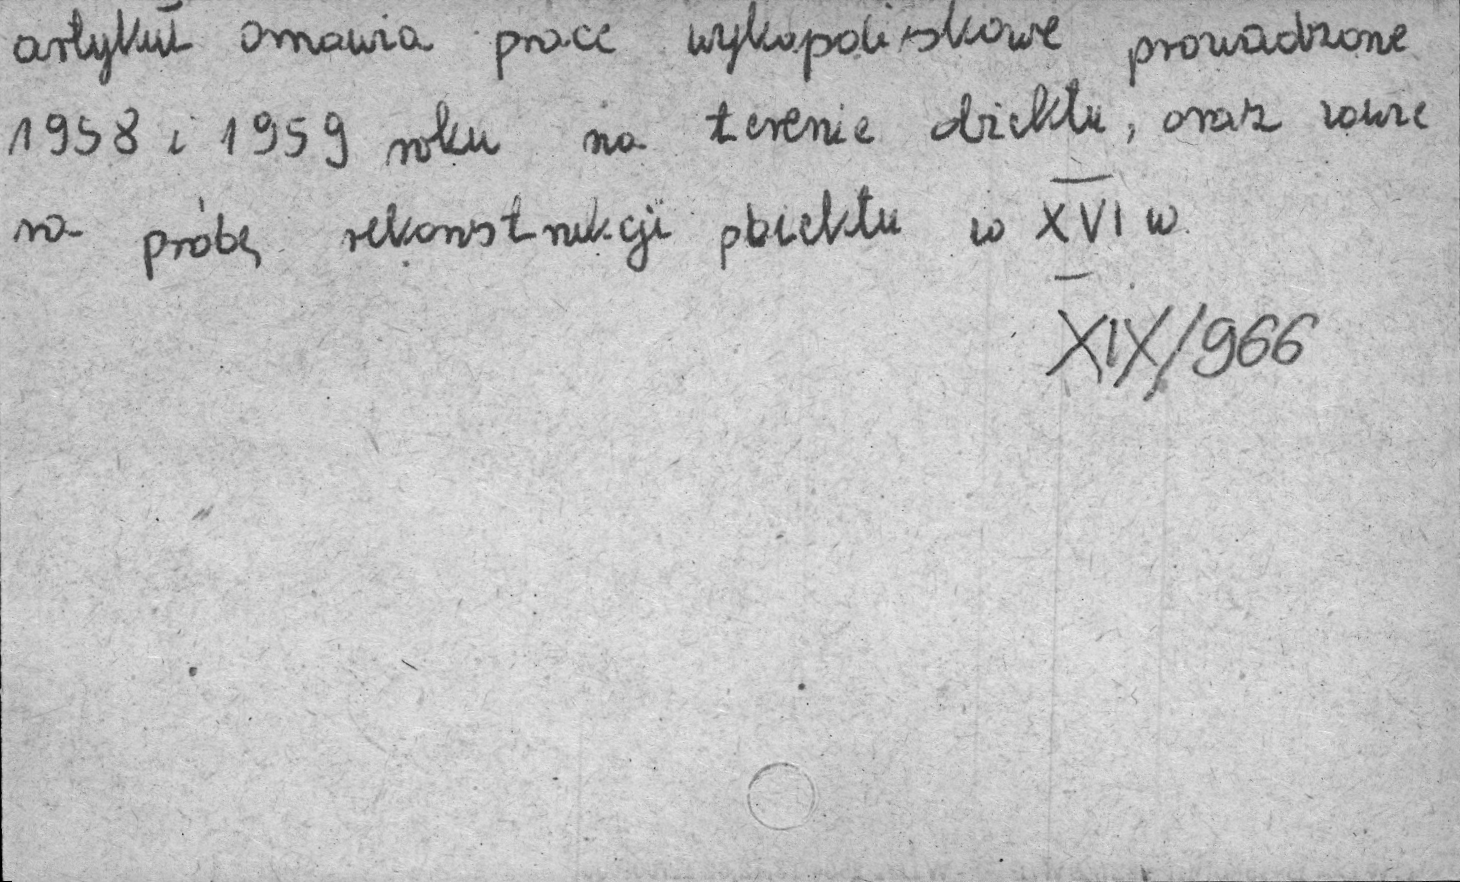 artykuł omawia prace wykopaliskowe prowadzone
1958 i 1959 roku na terenie obiektu, oraz zawie
ra próbę rekonstrukcji obiektu w XVI w.
XIX/966